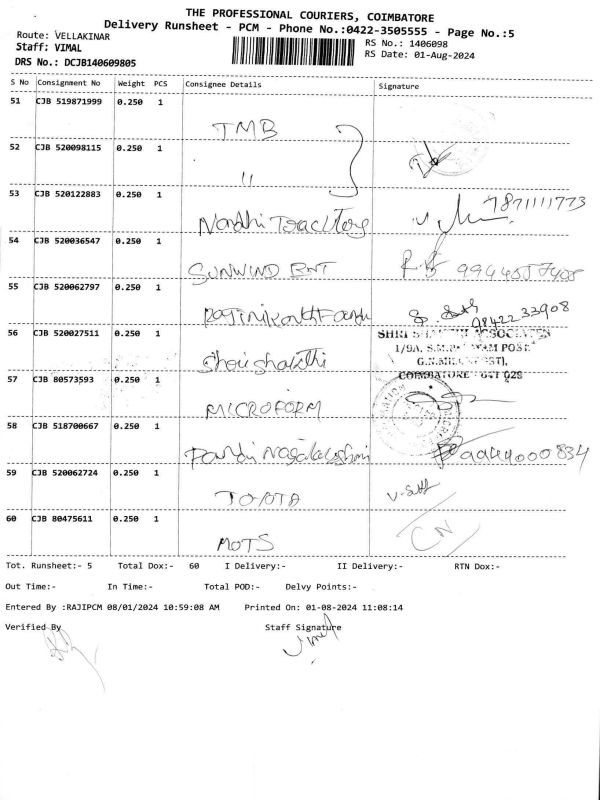 THE PROFESSIONAL COURIERS, COIMBATORE
Delivery Runsheet - PCM - Phone No.:0422-3505555 - Page No.:5
Route: VELLAKINAR
RS No.: 1406098
Staff: VIMAL
RS Date: 01-Aug-2024
DRS No.: DCJB140609805
S No Consignment No Weight PCS Consignee Details Signature
51 CJB 519871999 0.250 1 TMB
52 CJB 520098115 0.250 1 "
53 CJB 520122883 0.250 1 Nandhi Tractors 7871111773
54 CJB 520036547 0.250 1 SUNWIND ENT
55 CJB 520062797 0.250 1 9842233908
56 CJB 520027511 0.250 1 Shri shakthi SHRI SHAKTHI ASSOCIATES
1/9A, POST
COIMBATORE
57 CJB 80573593 0.250 1 MICROFORM
58 CJB 518700667 0.250 1 Pandi Nagalakshmi 9944000834
59 CJB 520062724 0.250 1 TOYOTA
60 CJB 80475611 0.250 1 MOTS CN
Tot. Runsheet:- 5 Total Dox:- 60 I Delivery:- II Delivery:- RTN Dox:-
Out Time:- In Time:- Total POD:- Delvy Points:-
Entered By :RAJIPCM 08/01/2024 10:59:08 AM Printed On: 01-08-2024 11:08:14
Verified By Staff Signature